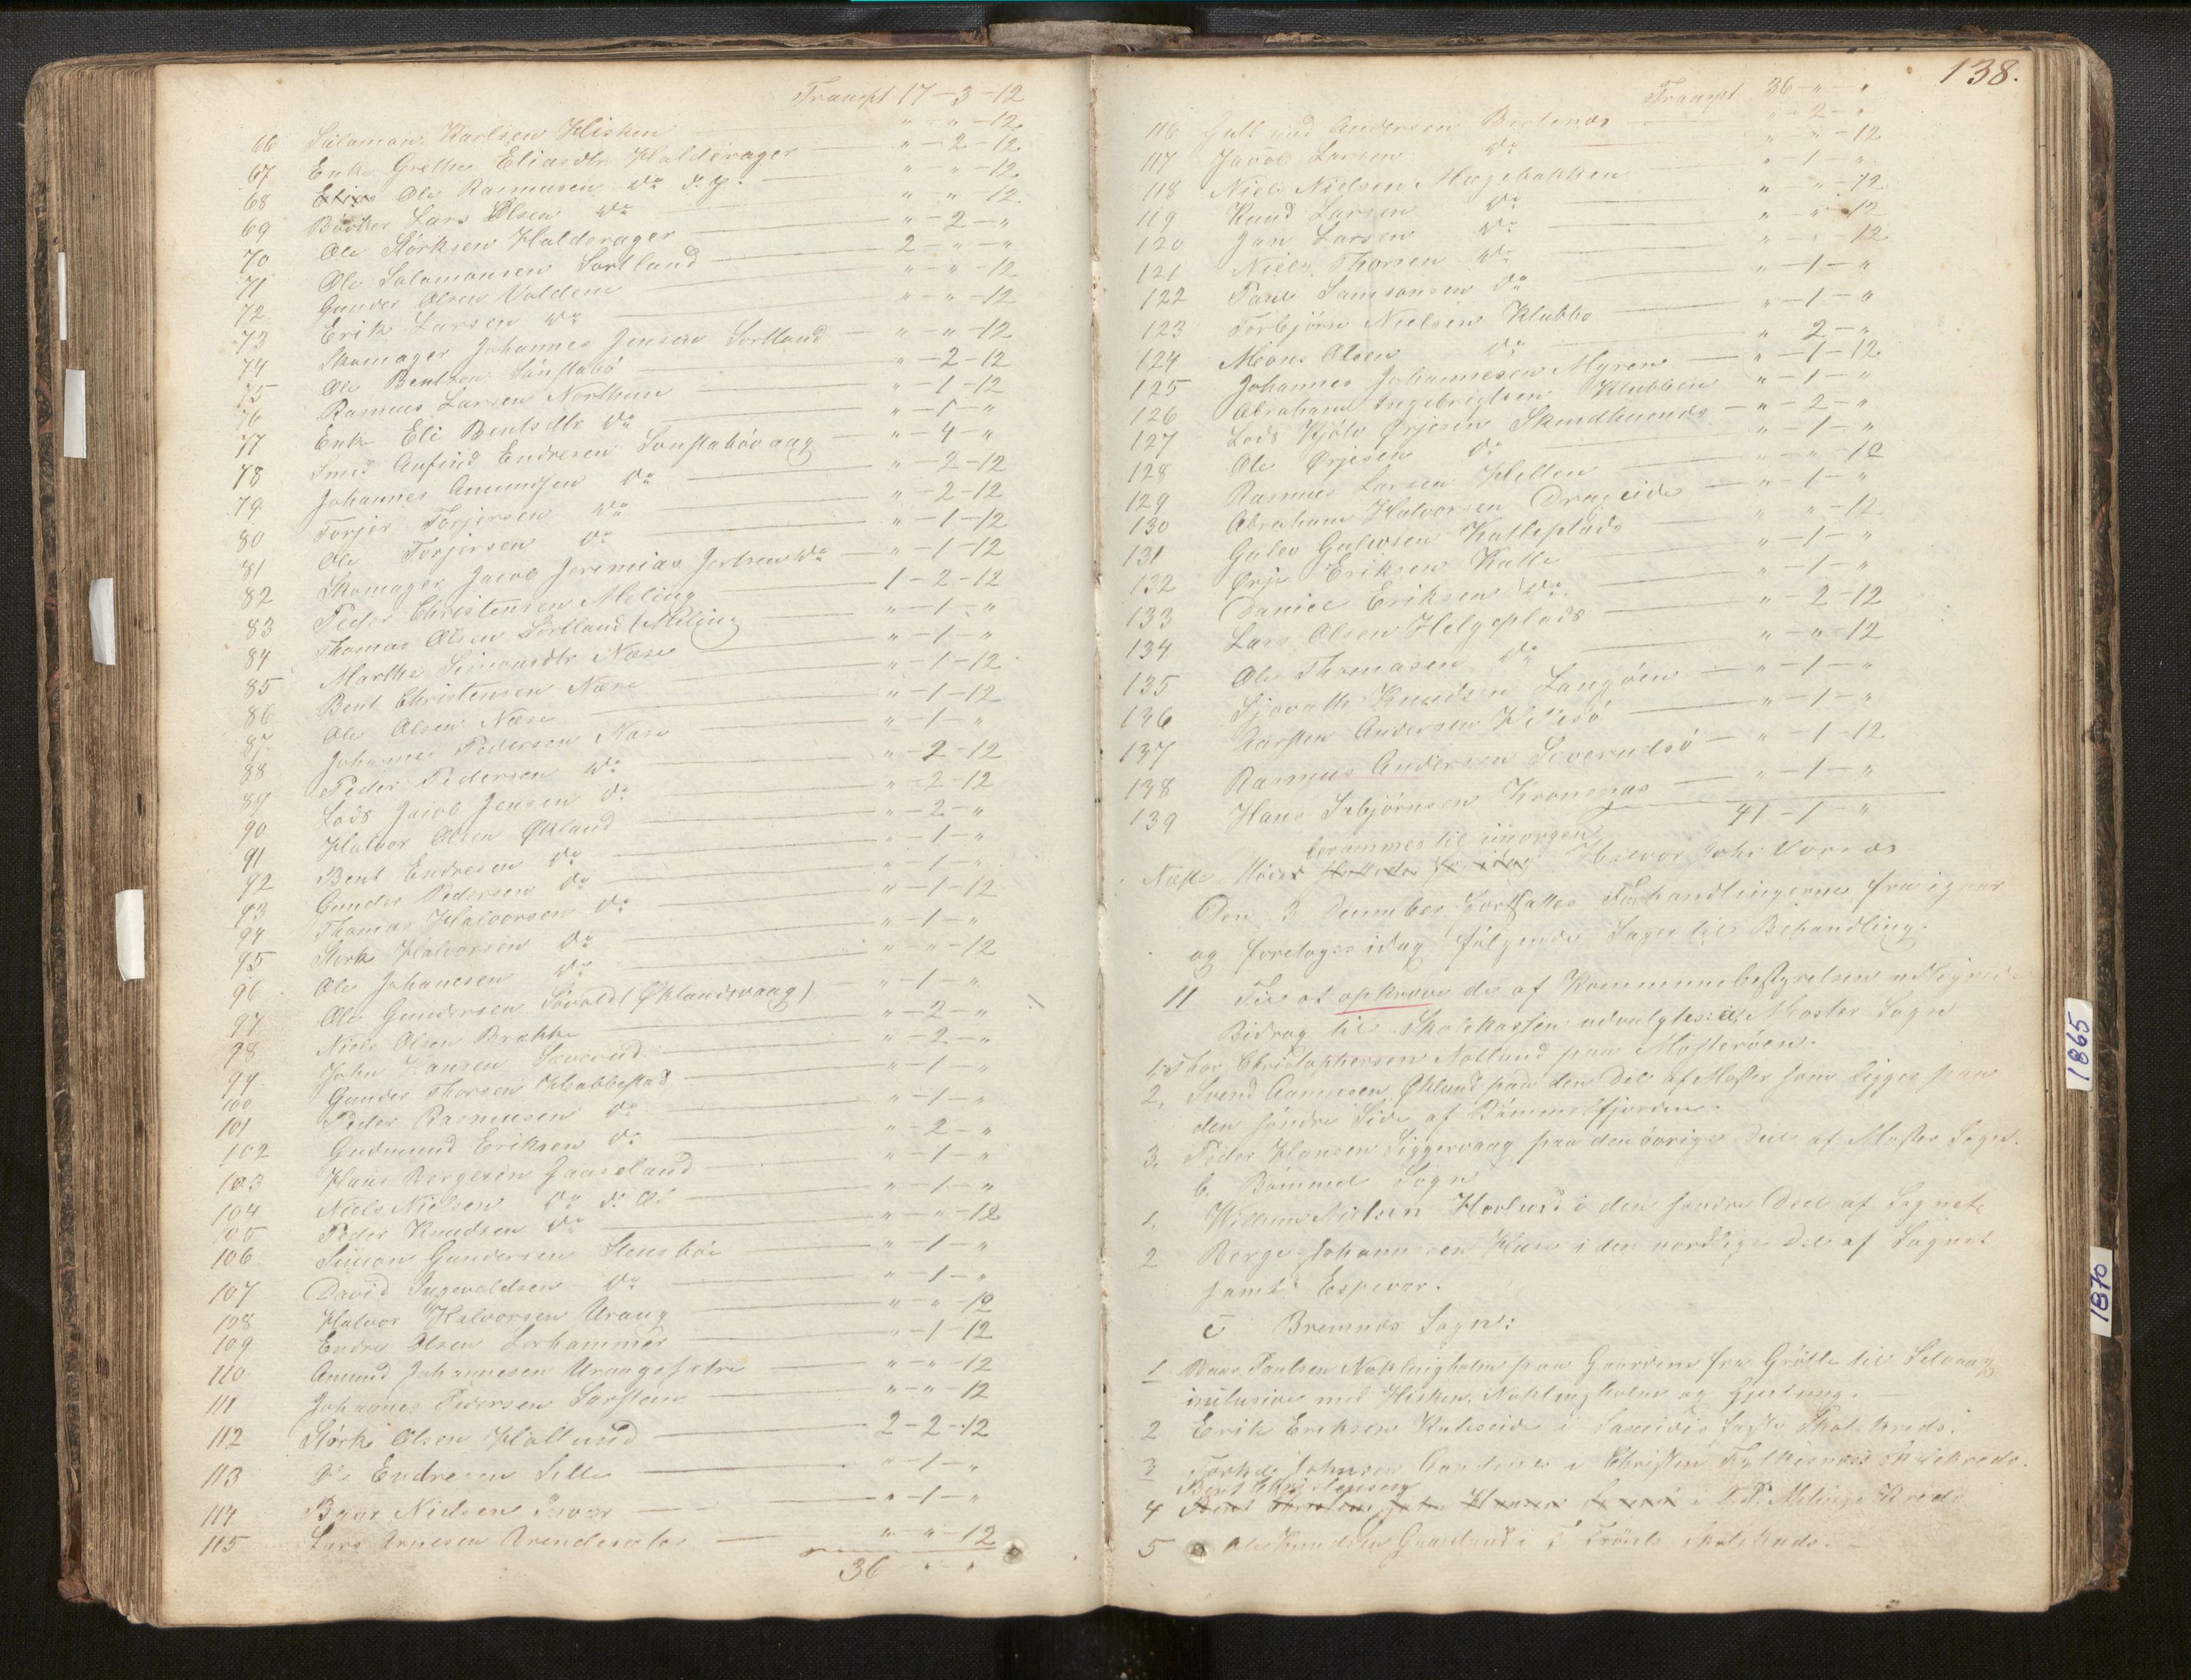 Transpt 17-3-12
66 Salamon Karlsen Hisken " - " -12
67 Enke Grethe Eliasdtr Halderager " -2-12
68 Ole Rasmusen do d. y. " - " -12
69 Bødker Lars Olsen do " " 12
70 Ole Størksen Halderager " -2- "
71 Ole Salamonsen Sortland 2- " - "
72 Gunder Olsen Valdem " - " -12
73 Erik Larsen do " - " -12
74 Skomager Johannes Jensen Sortland " - " -12
75 Ole Bentsen Sønstabø " -2-12
76 Rasmus Larsen Northun " -1-12
77 Enke Eli Bentsdtr do " -1- "
78 Smed Anfind Endresen Sønstabøvaag " -4- "
79 Johannes Amundsen do " -2-12
80 Torjer Torjersen do " -2-12
81 Ole Torjersen do " -1-12
82 Skomager Jacob Jeremias Jertsen do " -1-12
83 Peder Christensen Meling 1-2-12
84 Thomas Olsen Sortland (Meling " -1- "
85 Marthe Simonsdtr Næse " -1- "
86 Bent Christensen Næse " -1-12
87 Ole Olsen Næse " -1-12
88 Johannes Pedersen Næse " -1- "
89 Peder Pedersen do " -2-12
90 Lods Jacob Jensen do " -2-12
91 Halvor Olsen Økland " -2- "
92 Bent Endresen do " -1- "
93 Gunder Pedersen do " -1- "
94 Thomas Halvorsen do " -1-12
95 Størk Halvorsen do " -1- "
96 Ole Johanesen do " - " -12
97 Ole Gundersen Søvold (Øklandsvaag) " -1- "
98 Niels Olsen Brække " -2- "
99 John Hansen Søverud " -2- "
100 Gunder Thorsen Habbestad " -1- "
101 Peder Rasmusen do " -1- "
102 Gudmund Eriksen do " -2- "
103 Hans Børgesen Gaaseland " -1- "
104 Niels Nielsen do d. Æl " -1- "
105 Peder Knudsen do " - " -12
106 Simon Gundersen Stensbø " -1- "
107 David Ingevaldsen do " -1- "
108 Halvor Halvorsen Uraag " - " -12
109 Endre Olsen Lorhammer " -1-12
110 Amund Johannesen Uraagssætre " - " -12
111 Johannes Pedersen Sarsteen " - " -12
112 Størk Olsen Hollund 2-2-12
113 Endresen Sille " -1- "
114 Baar Nielsen " -1- "
115 Lars Arnesen " " -12
36 - " - "
138.
Transpt 36- " - "
116 Gulbrand Andersen Bratenæs " -2- "
117 Jacob Larsen do " - " -12
118 Niels Nielsen Høgebakken " -1- "
119 Knud Larsen do " - " -12
120 Jan Larsen do " - " -12
121 Niels Thorsen do " - " -12
122 Paul Samsonsen do " -1- "
123 Torbjørn Nielsen Klubbo " -1- "
124 Mons Olsen do " 2- "
125 Johannes Johannesen Myren " -1-12
126 Abraham Ingebrigtsen Klubben " -1- "
127 Lods Kjøla Ørjesen Skindhuendes " -2- "
128 Ole Ørjesen do " -1- "
129 Rasmus Larsen Hellen " - " -12
130 Abraham Halvorsen Drageide " -1- "
131 Gulov Gulovsen Katleplads " " -12
132 Ørje Eriksen Katle " -1- "
133 Daniel Eriksen do " -1- "
134 Lars Olsen Helgeplads " -2-12
135 Ole Thomasen do " - " -12
136 Sjovath Knudsen Langøen " -1- "
137 Karsten Andersen Hillesø " -1- "
138 Rasmus Andersen Goverudsø " -1-12
139 Hans Asbjørnsen Kronenæs " -1- "
41-1- "
berammes til imorgen
Næste Møde Halvor Johs Vornæs
Den 3 December fortsattes Forhandlingerne fra igaar
og foretoges idag følgende Sager til Behandling.
11 Til at opkræve de af Kommunebestyrelsen udlignede
Bidrag til Skolekassen udvalgtes: a, Moster Sogn
1. Thor Christophersen Notland paa Mosterøen.
2, Svend Aamusen Økland paa den Del af Moster som ligger paa
den søndre Side af Bømmelfjorden.
3. Peder Hansen Siggervaag paa den øvrige Deel af Moster Sogn.
b. Bømmel Sogn
1. Willem Nielsen Hovlund i den søndre Deel af Sognet
2 Børge Johannesen Huse i den nordlige Del af Sognet
samt Espevær.
c Bremnæs Sogn:
1 Baar Paulsen Nøklingholm paa Gaardene fra Grøtle til Selvaag
inclusive med Hisken, Nøklingholm og Gjertung.
2 Erik Eriksen Kuleseid i faste Skolekreds.
3 Johnsen i Christen Skolekreds.
Bent Christensen
4 i P. P. Melings Kreds
5 Ole Knudsen Gaaseland i Skolekreds.
1865
1870